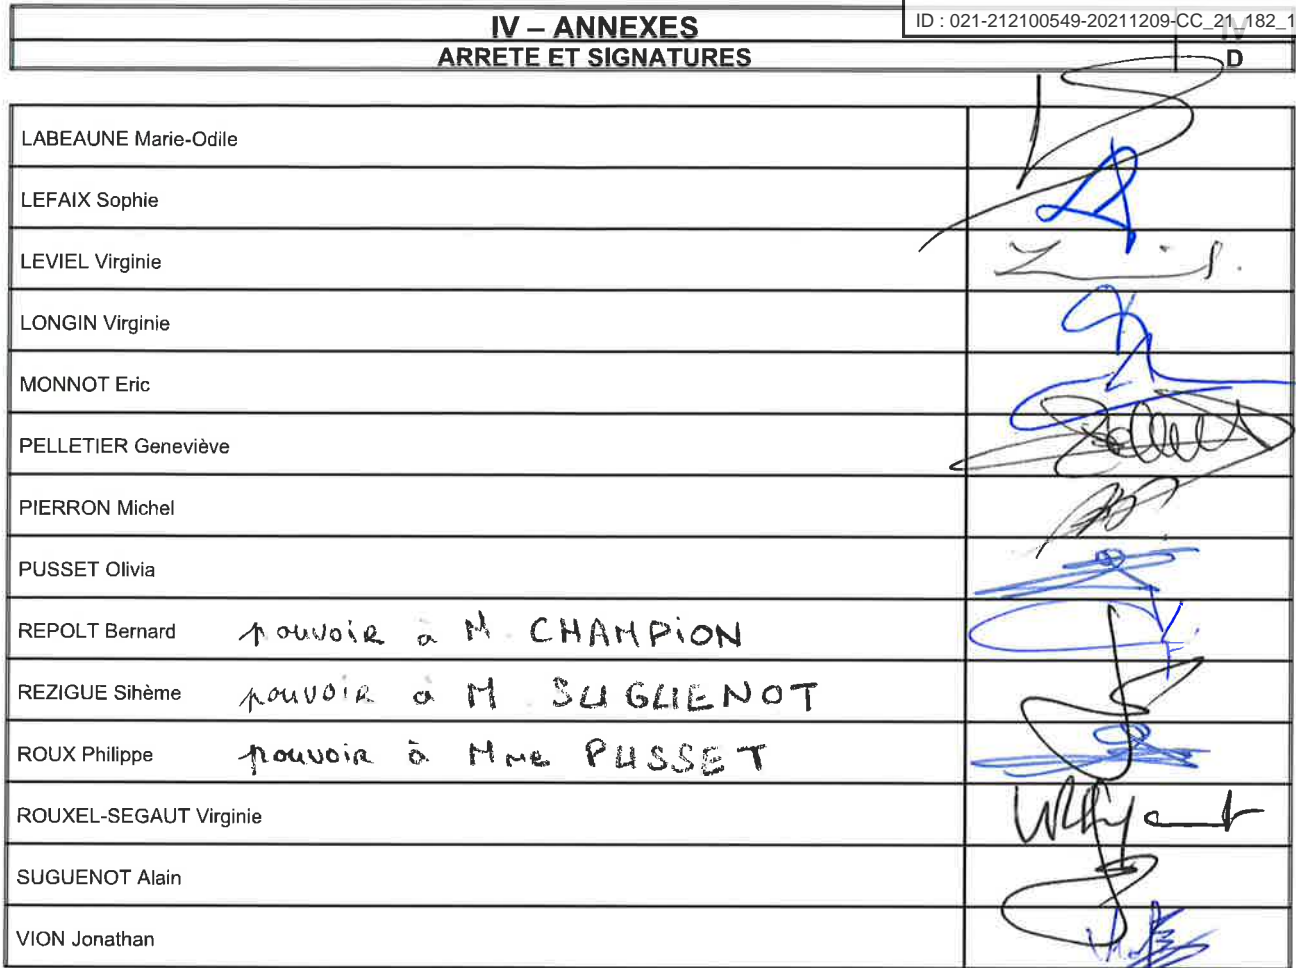 IV – ANNEXES
ID : 021-212100549-20211209-CC_21_182_1
IV
ARRETE ET SIGNATURES
D
LABEAUNE Marie-Odile
LEFAIX Sophie
LEVIEL Virginie
LONGIN Virginie
MONNOT Eric
PELLETIER Geneviève
PIERRON Michel
PUSSET Olivia
REPOLT Bernard pouvoir à M. CHAMPION
REZIGUE Sihème pouvoir à M. SUGUENOT
ROUX Philippe pouvoir à Mme PUSSET
ROUXEL-SEGAUT Virginie
SUGUENOT Alain
VION Jonathan